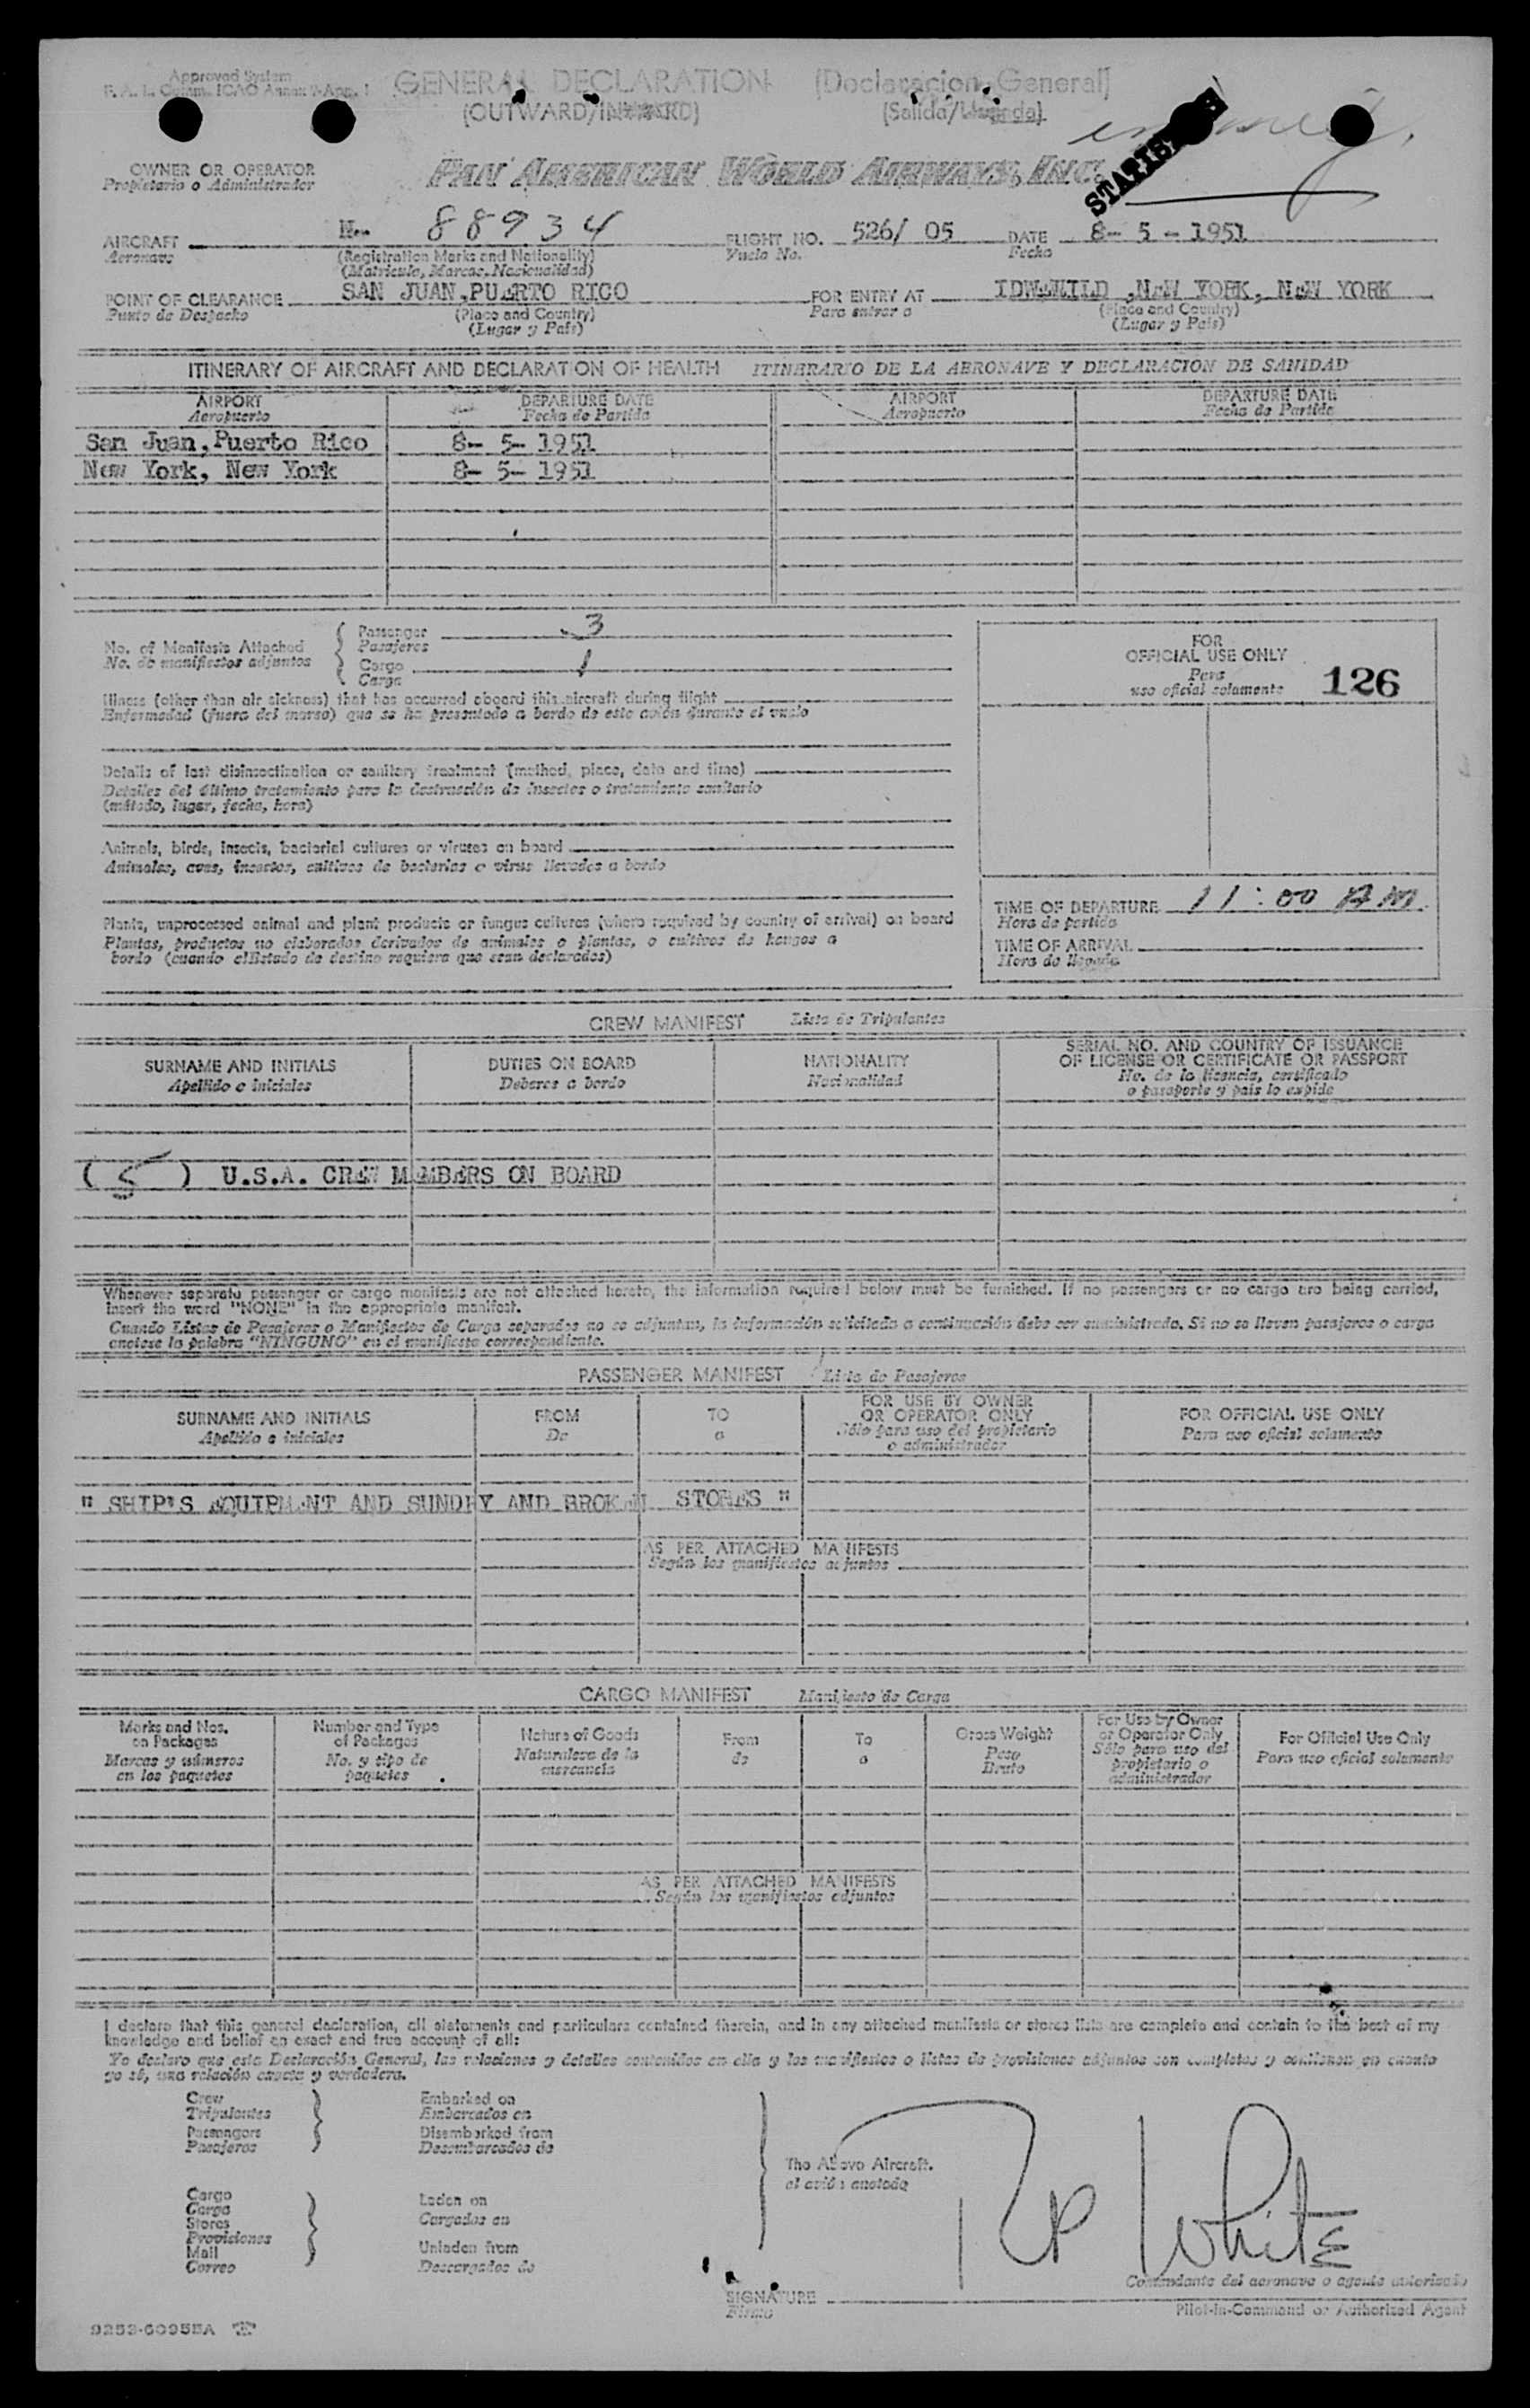 Approved System
GENERAL DECLARATION (Declaracion General)
(OUTWARD/INWARD) (Salida/
STATISTICS
OWNER OR OPERATOR
Propietario o Administrador
PAN AMERICAN WORLD AIRWAYS, INC.
AIRCRAFT N-- 88934 FLIGHT NO. 526/ 05 DATE 8- 5 - 1951
Aeronave (Registration Marks and Nationality) Vuelo No. Fecha
(Matricula, Marcas, Nacionalidad)
POINT OF CLEARANCE SAN JUAN,PUERTO RICO FOR ENTRY AT IDLEWILD ,NEW YORK, NEW YORK
Punto de Despacho (Place and Country) Para entrar a (Place and Country)
(Lugar y País) (Lugar y País)
ITINERARY OF AIRCRAFT AND DECLARATION OF HEALTH ITINERARIO DE LA AERONAVE Y DECLARACION DE SANIDAD
AIRPORT DEPARTURE DATE AIRPORT DEPARTURE DATE
Aeropuerto Fecha de Partida Aeropuerto Fecha de Partida
San Juan,Puerto Rico 8- 5- 1951
New York, New York 8- 5- 1951
No. of Manifests Attached Passenger 3
No. de manifiestos adjuntos Pasajeros
Cargo 1
Carga
FOR
OFFICIAL USE ONLY
Para
uso oficial solamente 126
Illness (other than air sickness) that has occurred aboard this aircraft during flight
Enfermedad (fuera del mareo) que se ha presentado a bordo de este avión durante el vuelo
Details of last disinsectization or sanitary treatment (method, place, date and time)
Detalles del último tratamiento para la destrucción de insectos o tratamiento sanitario
(método, lugar, fecha, hora)
Animals, birds, insects, bacterial cultures or viruses on board
Animales, aves, insectos, cultivos de bacterias o virus llevados a bordo
Plants, unprocessed animal and plant products or fungus cultures (where required by country of arrival) on board
Plantas, productos no elaborados derivados de animales o plantas, o cultivos de hongos a
bordo (cuando el Estado de destino requiera que sean declarados)
TIME OF DEPARTURE 11:00 AM
Hora de partida
TIME OF ARRIVAL
Hora de llegada
CREW MANIFEST Lista de Tripulantes
SURNAME AND INITIALS DUTIES ON BOARD NATIONALITY SERIAL NO. AND COUNTRY OF ISSUANCE
OF LICENSE OR CERTIFICATE OR PASSPORT
Apellido e iniciales Deberes a bordo Nacionalidad No. de la licencia, certificado
o pasaporte y país lo expide
( 5 ) U.S.A. CREW MEMBERS ON BOARD
Whenever separate passenger or cargo manifests are not attached hereto, the information required below must be furnished. If no passengers or no cargo are being carried,
insert the word "NONE" in the appropriate manifest.
Cuando Listas de Pasajeros o Manifiestos de Carga separados no se adjuntan, la información solicitada a continuación debe ser suministrada. Si no se llevan pasajeros o carga
anotese la palabra "NINGUNO" en el manifiesto correspondiente.
PASSENGER MANIFEST Lista de Pasajeros
SURNAME AND INITIALS FROM TO FOR USE BY OWNER
OR OPERATOR ONLY FOR OFFICIAL USE ONLY
Apellido e iniciales De a Sólo para uso del propietario
o administrador Para uso oficial solamente
" SHIP'S EQUIPMENT AND SUNDRY AND BROKEN STORES "
AS PER ATTACHED MANIFESTS
Según los manifiestos adjuntos
CARGO MANIFEST Manifiesto de Carga
Marks and Nos.
on Packages
Marcas y números
en los paquetes
Number and Type
of Packages
No. y tipo de
paquetes
Nature of Goods
Naturaleza de la
mercancía
From
de
To
a
Gross Weight
Peso
Bruto
For Use by Owner
or Operator Only
Sólo para uso del
propietario o
administrador
For Official Use Only
Para uso oficial solamente
AS PER ATTACHED MANIFESTS
Según los manifiestos adjuntos
I declare that this general declaration, all statements and particulars contained therein, and in any attached manifests or stores lists are complete and contain to the best of my
knowledge and belief an exact and true account of all:
Yo declaro que esta Declaración General, las relaciones y detalles contenidos en ella y los manifiestos o listas de provisiones adjuntos son completos y contienen en cuanto
yo sé, una relación exacta y verdadera.
Crew
Tripulantes
Passengers
Pasajeros
Embarked on
Embarcados en
Disembarked from
Desembarcados de
The Above Aircraft.
el avión anotado
Cargo
Carga
Stores
Provisiones
Mail
Correo
Laden on
Cargados en
Unladen from
Descargados de
RP White
Comandante del aeronave o agente autorizado
SIGNATURE
Firma
Pilot-in-Command or Authorized Agent
9253-60955A